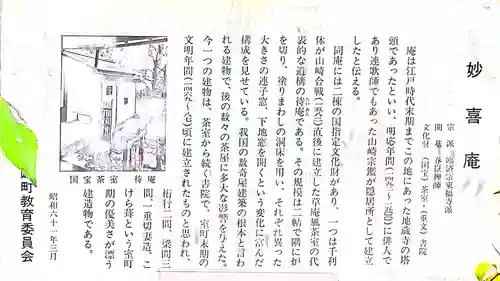 妙喜庵
宗派 臨済宗東福寺派
開基 春嶽禅師
文化財 (国宝) 茶室・(重文) 書院
庵は江戸時代末期までこの地にあった地蔵寺の塔
頭であったといい、明応年間(一四九二〜一五〇一)に俳人で
あり連歌師でもあった山崎宗鑑が隠居所として建立
したと伝える。
同庵には二棟の国指定文化財があり、一つは千利
休が山崎合戦(一五八二)直後に建立した草庵風茶室の代
表的な遺構の待庵である。その規模は二帖で隅に炉
を切り、塗りまわしの洞床を用い、それぞれ異った
大きさの連子窓、下地窓を開くという変化に富んだ
構成を見せている。我国の数奇屋建築の根本と言わ
れる建物で、後の数々の茶屋に多大な影響を与えた。
今一つの建物は、茶室から続く書院で、室町末期の
文明年間(一四六九〜八七)頃に建立されたものと思われ、
桁行二間、梁間三
間、一重切妻造、こ
けら葺という室町
期の優美さが漂う
建造物である。
国宝茶室 待庵
昭和六十一年三月
町教育委員会